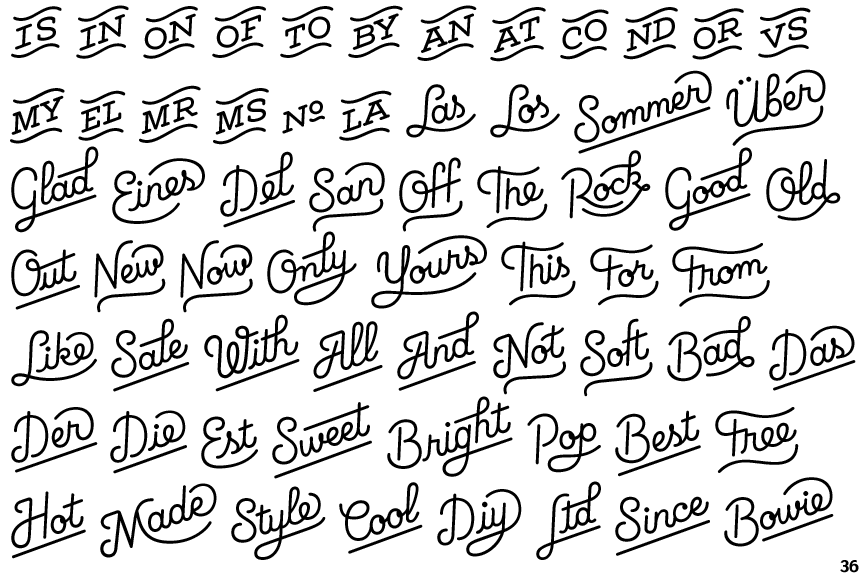 IS IN ON OF TO BY AN AT CO ND OR VS
MY EL MR MS Nº LA Las Los Sommer Über
Glad Eines Del San Off The Rock Good Old
Out New Now Only Yours This For From
Like Sale With All And Not Soft Bad Das
Der Die Est Sweet Bright Pop Best Free
Hot Made Style Cool Diy Ltd Since Bowie
36